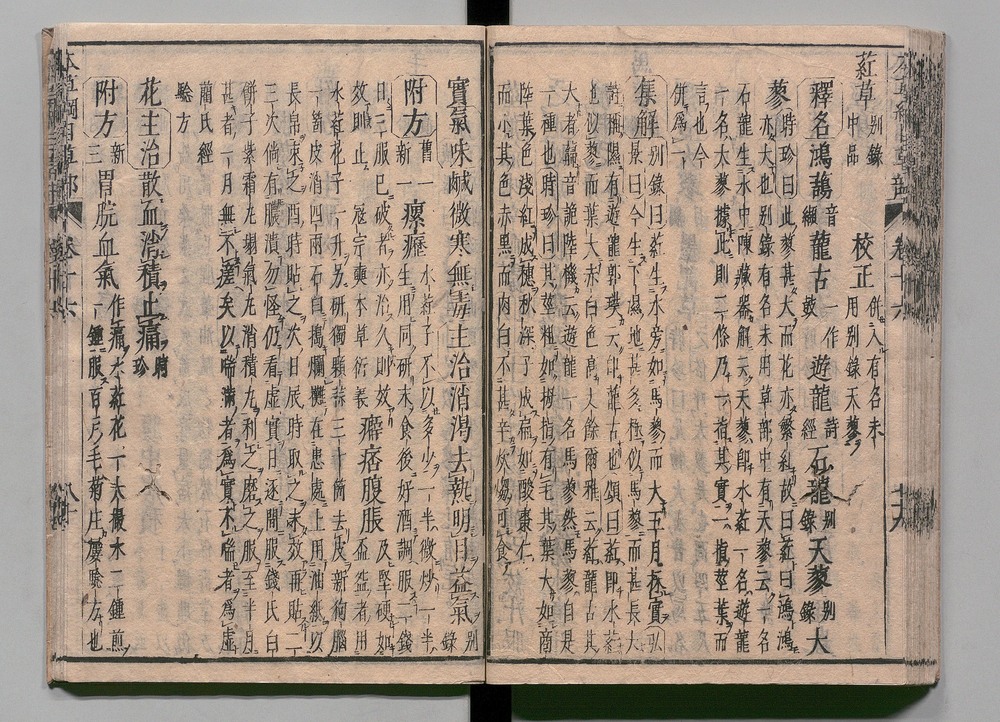 葒草 別錄中品 校正 併入有名未用別錄天蓼
釋名 鴻䕡 音纈 蘢古 一作鼓 遊龍 詩經 石龍 別錄 天蓼 別錄 大
蓼 時珍曰此蓼甚大而花亦繁紅故曰葒曰鴻鴻
亦大也別錄有名未用草部中有天蓼云一名
石龍生水中陳藏器解云天蓼即水葒一名遊龍
一名大蓼據此則二條乃一指其實一指莖葉而
言也今
併為一
集解 別錄曰葒生水旁如馬蓼而大五月采實弘
景曰今生下濕地甚多極似馬蓼而甚長大
詩稱隰有遊龍郭璞云即蘢古也頌曰葒即水葒
也似蓼而葉大赤白色高丈餘爾雅云葒蘢古其
大者蘬音詭陸機云遊龍一名馬蓼然馬蓼自是
一種也時珍曰其莖粗如拇指有毛其葉大如商
陸葉色淺紅成穗秋深子成扁如酸棗仁
而小其色赤黑而肉白不甚辛炊煼可食
實氣味鹹微寒無毒主治消渴去熱明目益氣 別錄
附方 舊一新一 瘰癧 水葒子不以多少一半微炒一半生用同研末食後好酒調服二錢
日三服已破者亦治久則效
效即止 寇宗奭本草衍義 癖痞腹脹 及堅硬如盃盌者用
水葒花子一升另研獨顆蒜三十箇去皮新狗腦
一箇皮消四兩石臼搗爛攤在患處上用油紙以
長帛束之酉時貼之次日辰時取之未效再貼二
三次倘有膿潰勿怪仍看虛實日逐間服錢氏白
餅子紫霜丸塌氣丸消積丸利之磨之服至半月
甚者一月無不瘥矣以喘滿者為實不喘者為虛
藺氏經
驗方
花主治散血消積止痛 時珍
附方 新三 胃脘血氣 作痛水葒花一大撮水二鍾煎一鍾服百戶毛菊庄屢驗方也